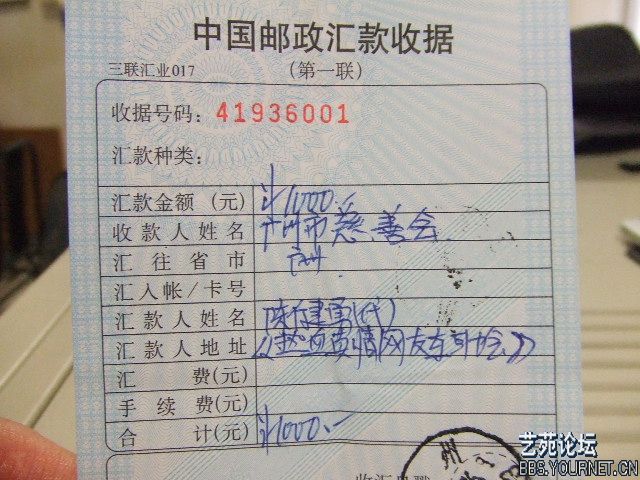 中国邮政汇款收据
三联汇业017
(第一联)
收据号码：41936001
汇款种类：
汇款金额 (元) 1000.-
收款人姓名 广州市慈善会
汇往省市 广州
汇入帐/卡号
汇款人姓名 陈 勇(代)
汇款人地址 情网友 会》
汇 费(元)
手续费(元)
合 计(元) 1000.-
州
艺苑论坛
BBS.YOURNET.CN